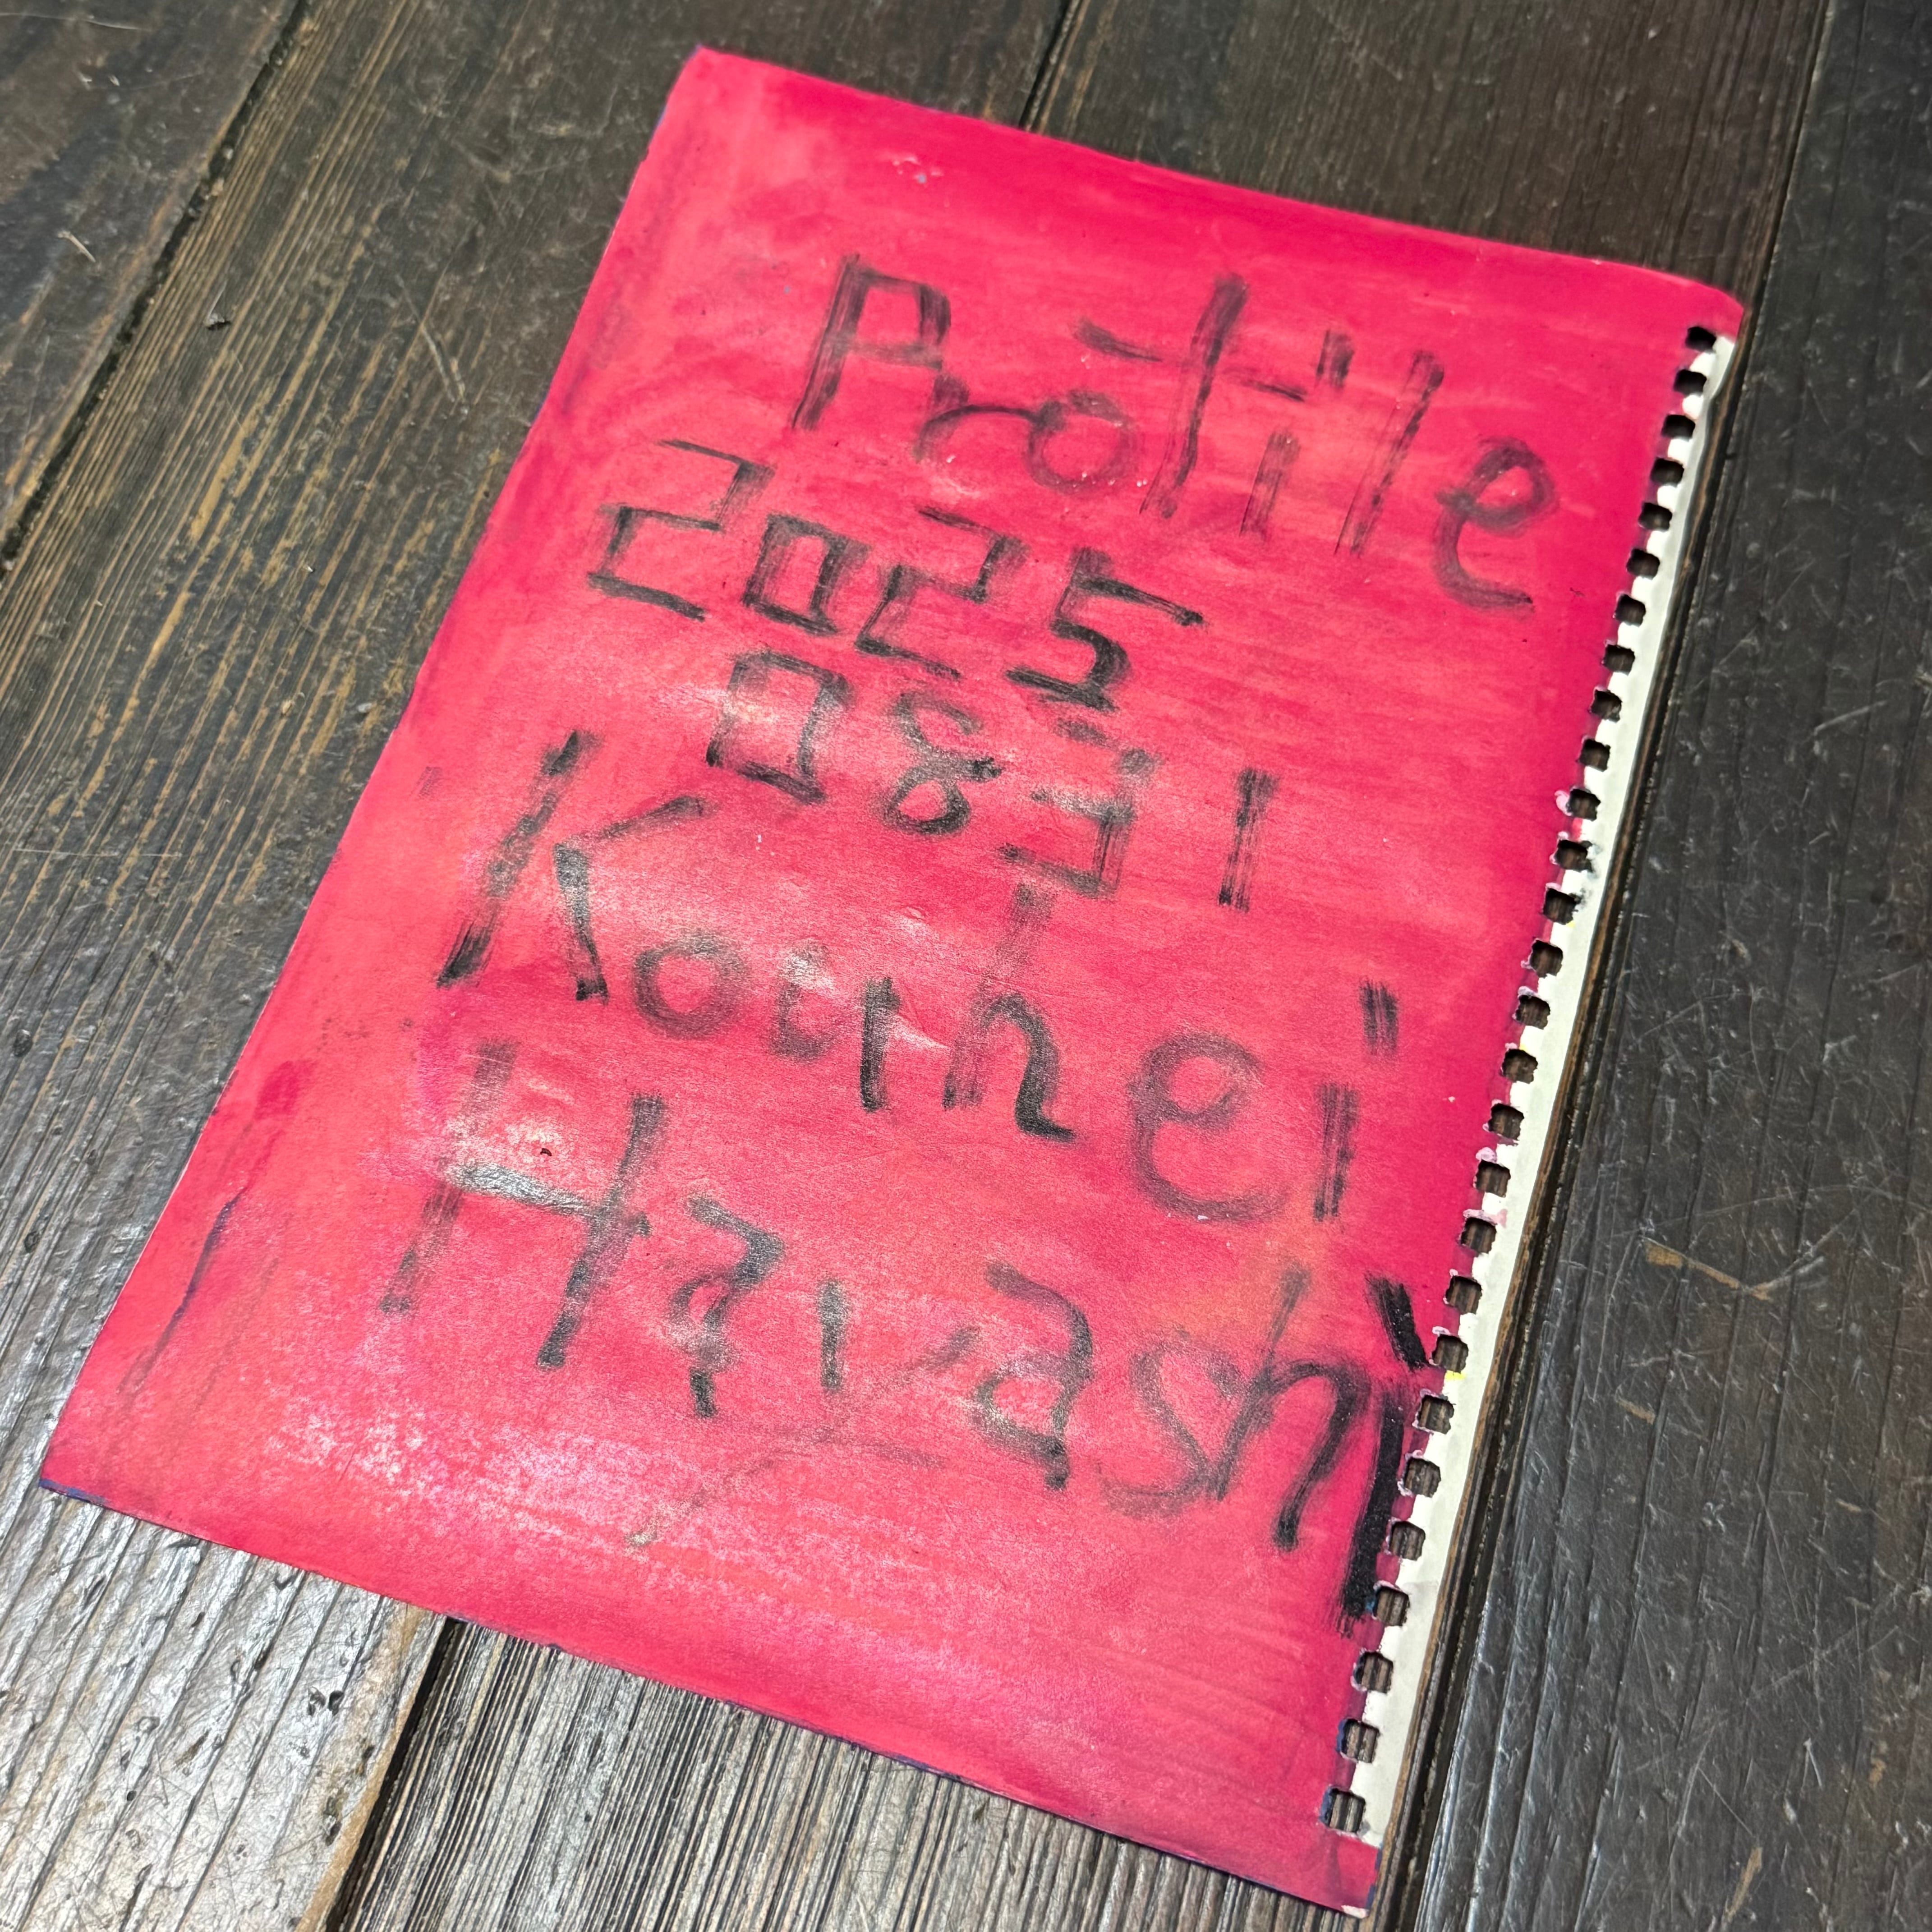 Profile
2025
0831
Kouhei
Hayashi